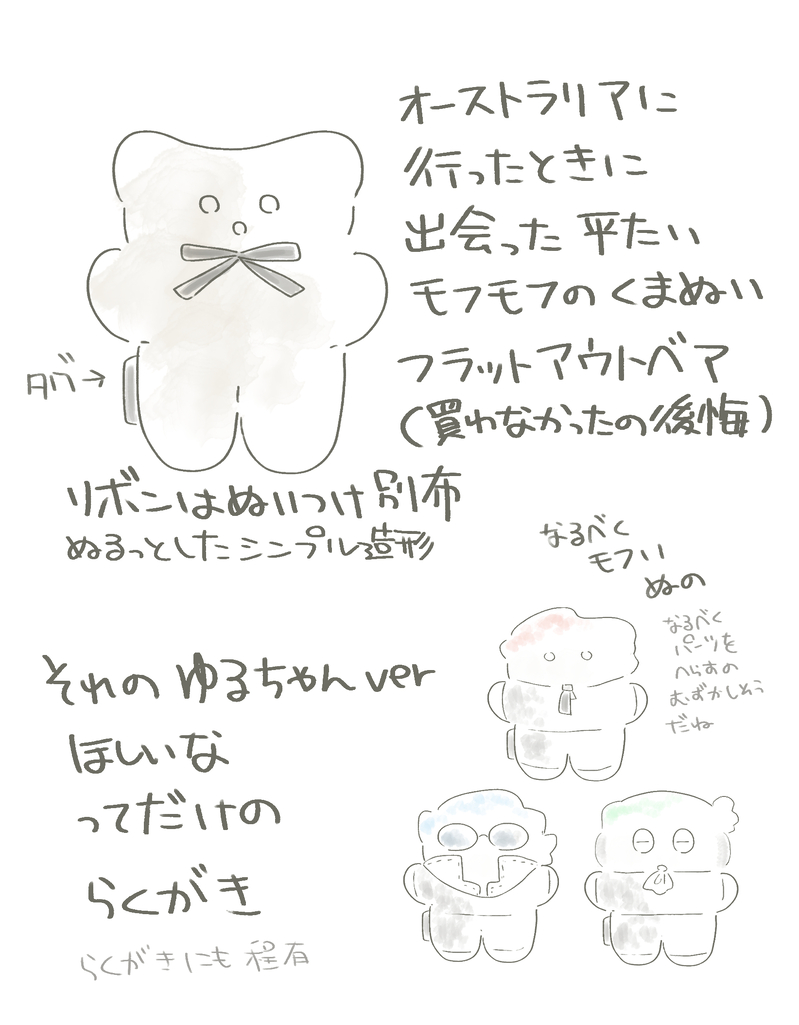 オーストラリアに
行ったときに
出会った 平たい
モフモフの くまぬい
フラットアウトベア
(買わなかったの後悔)
タグ→
リボンはぬいつけ 別布
ぬるっとした シンプル造形
なるべく
モフい
ぬの
なるべく
パーツを
へらすの
むずかしそう
だね
それの ゆるちゃん ver
ほしいな
ってだけの
らくがき
らくがきにも 程有